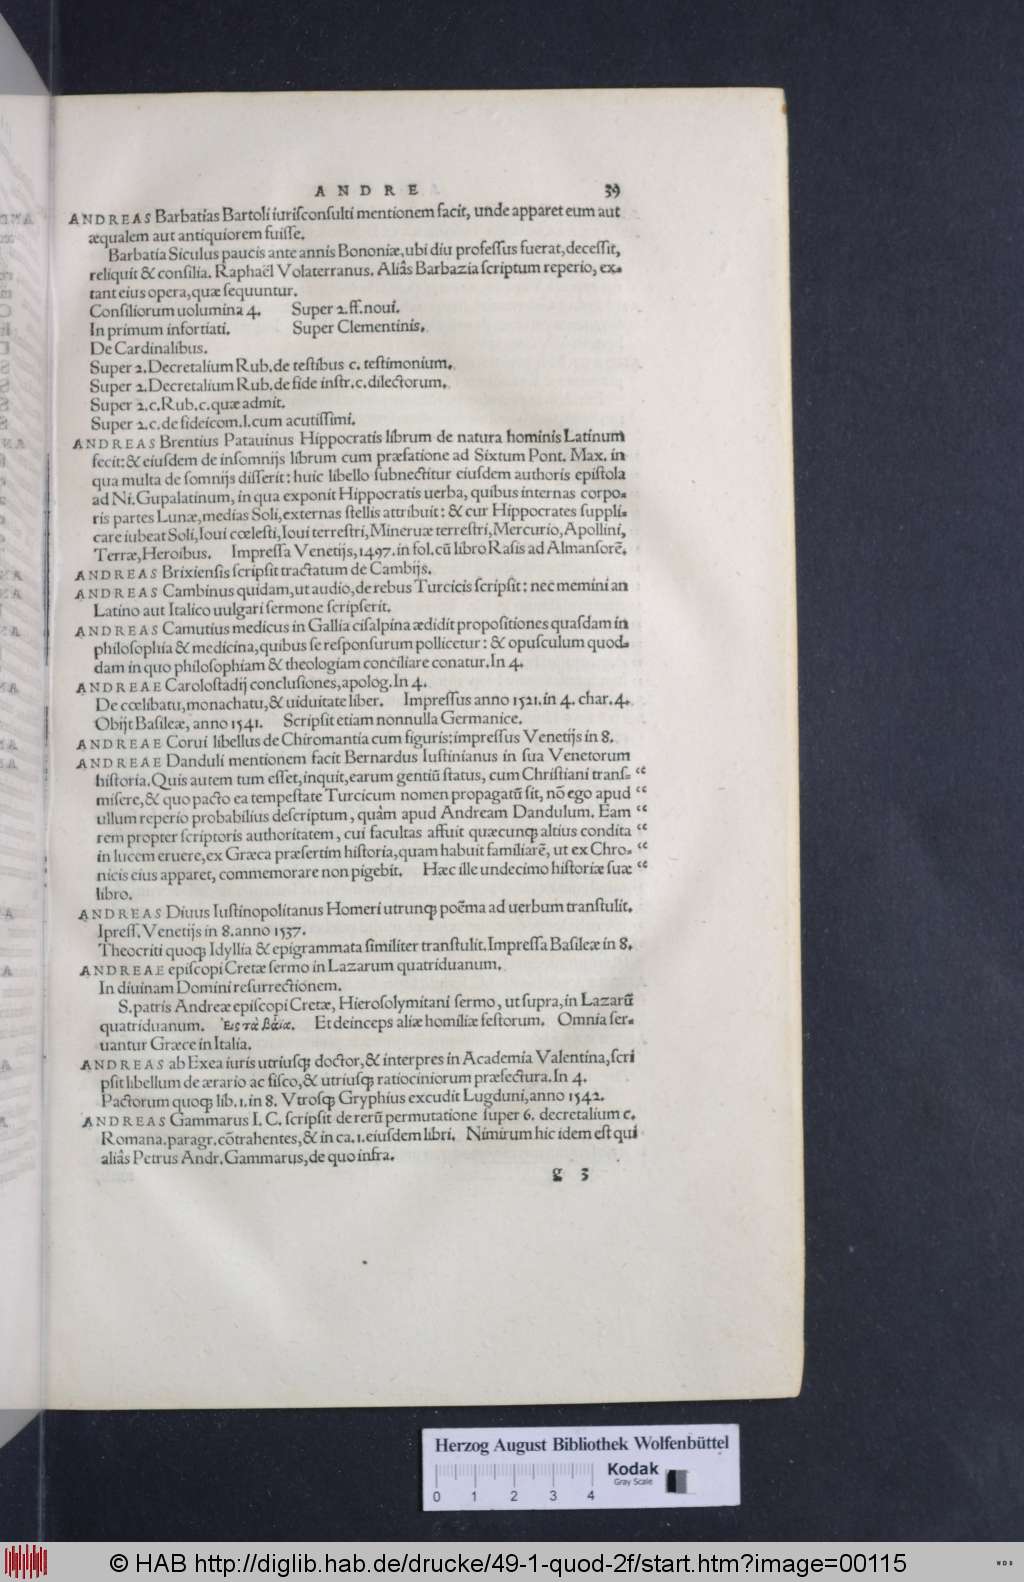 ANDRE 39
ANDREAS Barbatias Bartoli iuriſconſulti mentionem facit, unde apparet eum aut
æqualem aut antiquiorem fuiſſe.
Barbatia Siculus paucis ante annis Bononiæ, ubi diu profeſſus fuerat, deceſſit,
reliquit & conſilia. Raphaël Volaterranus. Aliâs Barbazia ſcriptum reperio, ex-
tant eius opera, quæ ſequuntur.
Conſiliorum uolumina 4. Super 2. ff. noui.
In primum infortiati. Super Clementinis.
De Cardinalibus.
Super 2. Decretalium Rub. de teſtibus c. teſtimonium.
Super 2. Decretalium Rub. de fide inſtr. c. dilectorum.
Super 2. c. Rub. c. quæ admit.
Super 2. c. de fideicom. l. cum acutiſſimi.
ANDREAS Brentius Patauinus Hippocratis librum de natura hominis Latinum
fecit: & eiuſdem de inſomnijs librum cum præfatione ad Sixtum Pont. Max. in
qua multa de ſomnijs diſſerit: huic libello ſubnectitur eiuſdem authoris epiſtola
ad Ni. Gupalatinum, in qua exponit Hippocratis uerba, quibus internas corpo-
ris partes Lunæ, medias Soli, externas ſtellis attribuit: & cur Hippocrates ſuppli-
care iubeat Soli, Ioui cœleſti, Ioui terreſtri, Mineruæ terreſtri, Mercurio, Apollini,
Terræ, Heroibus. Impreſſa Venetijs, 1497. in fol. cũ libro Raſis ad Almanſorẽ.
ANDREAS Brixienſis ſcripſit tractatum de Cambijs.
ANDREAS Cambinus quidam, ut audio, de rebus Turcicis ſcripſit: nec memini an
Latino aut Italico uulgari ſermone ſcripſerit.
ANDREAS Camutius medicus in Gallia ciſalpina ædidit propoſitiones quaſdam in
philoſophia & medicina, quibus ſe reſponſurum pollicetur: & opuſculum quod-
dam in quo philoſophiam & theologiam conciliare conatur. In 4.
ANDREAE Caroloſtadij concluſiones, apolog. In 4.
De cœlibatu, monachatu, & uiduitate liber. Impreſſus anno 1521. in 4. char. 4.
Obijt Baſileæ, anno 1541. Scripſit etiam nonnulla Germanice.
ANDREAE Corui libellus de Chiromantia cum figuris: impreſſus Venetijs in 8.
ANDREAE Danduli mentionem facit Bernardus Iuſtinianus in ſua Venetorum
hiſtoria. Quis autem tum eſſet, inquit, earum gentiũ ſtatus, cum Chriſtiani tranſ- “
miſere, & quo pacto ea tempeſtate Turcicum nomen propagatũ ſit, nõ ego apud “
ullum reperio probabilius deſcriptum, quàm apud Andream Dandulum. Eam “
rem propter ſcriptoris authoritatem, cui facultas affuit quæcunq; altius condita “
in lucem eruere, ex Græca præſertim hiſtoria, quam habuit familiarẽ, ut ex Chro- “
nicis eius apparet, commemorare non pigebit. Hæc ille undecimo hiſtoriæ ſuæ “
libro.
ANDREAS Diuus Iuſtinopolitanus Homeri utrunq; poẽma ad uerbum tranſtulit.
Ipreſſ. Venetijs in 8. anno 1537.
Theocriti quoq; Idyllia & epigrammata ſimiliter tranſtulit. Impreſſa Baſileæ in 8.
ANDREAE epiſcopi Cretæ ſermo in Lazarum quatriduanum.
In diuinam Domini reſurrectionem.
S. patris Andreæ epiſcopi Cretæ, Hieroſolymitani ſermo, ut ſupra, in Lazarũ
quatriduanum. Εἰς τὰ βάϊα. Et deinceps aliæ homiliæ feſtorum. Omnia ſer-
uantur Græce in Italia.
ANDREAS ab Exea iuris utriuſq; doctor, & interpres in Academia Valentina, ſcri
pſit libellum de ærario ac fiſco, & utriuſq; ratiociniorum præfectura. In 4.
Pactorum quoq; lib. 1. in 8. Vtroſq; Gryphius excudit Lugduni, anno 1542.
ANDREAS Gammarus I. C. ſcripſit de rerũ permutatione ſuper 6. decretalium c.
Romana. paragr. cõtrahentes, & in ca. 1. eiuſdem libri. Nimirum hic idem eſt qui
aliâs Petrus Andr. Gammarus, de quo infra.
g 3
Herzog August Bibliothek Wolfenbüttel
Kodak
Gray Scale
0 1 2 3 4
© HAB http://diglib.hab.de/drucke/49-1-quod-2f/start.htm?image=00115
WDB